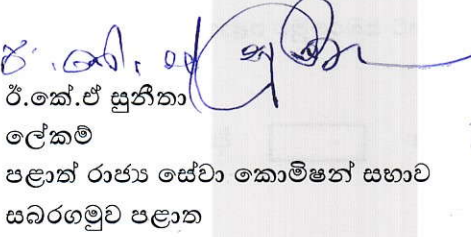 ඊ.කේ.ඒ සුනීතා
ලේකම්
පළාත් රාජ්‍ය සේවා කොමිෂන් සභාව
සබරගමුව පළාත